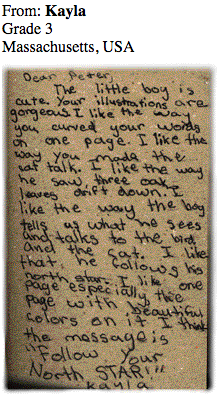 From: Kayla
Grade 3
Massachusetts, USA
Dear Peter,
The little boy is
cute. Your illustrations are
gorgeous I like the way
you curved your words
on one page. I like the
way you made the
cat talk. I like the way
he saw three oak
leaves drift down. I
like the way the boy
tells us what he sees
and talks to the bird
and the cat. I like
that he follows his
north star. I like one
page especially the
page with beautiful
colors on it. I think
the massage is
"Follow Your
North STAR!"
Kayla